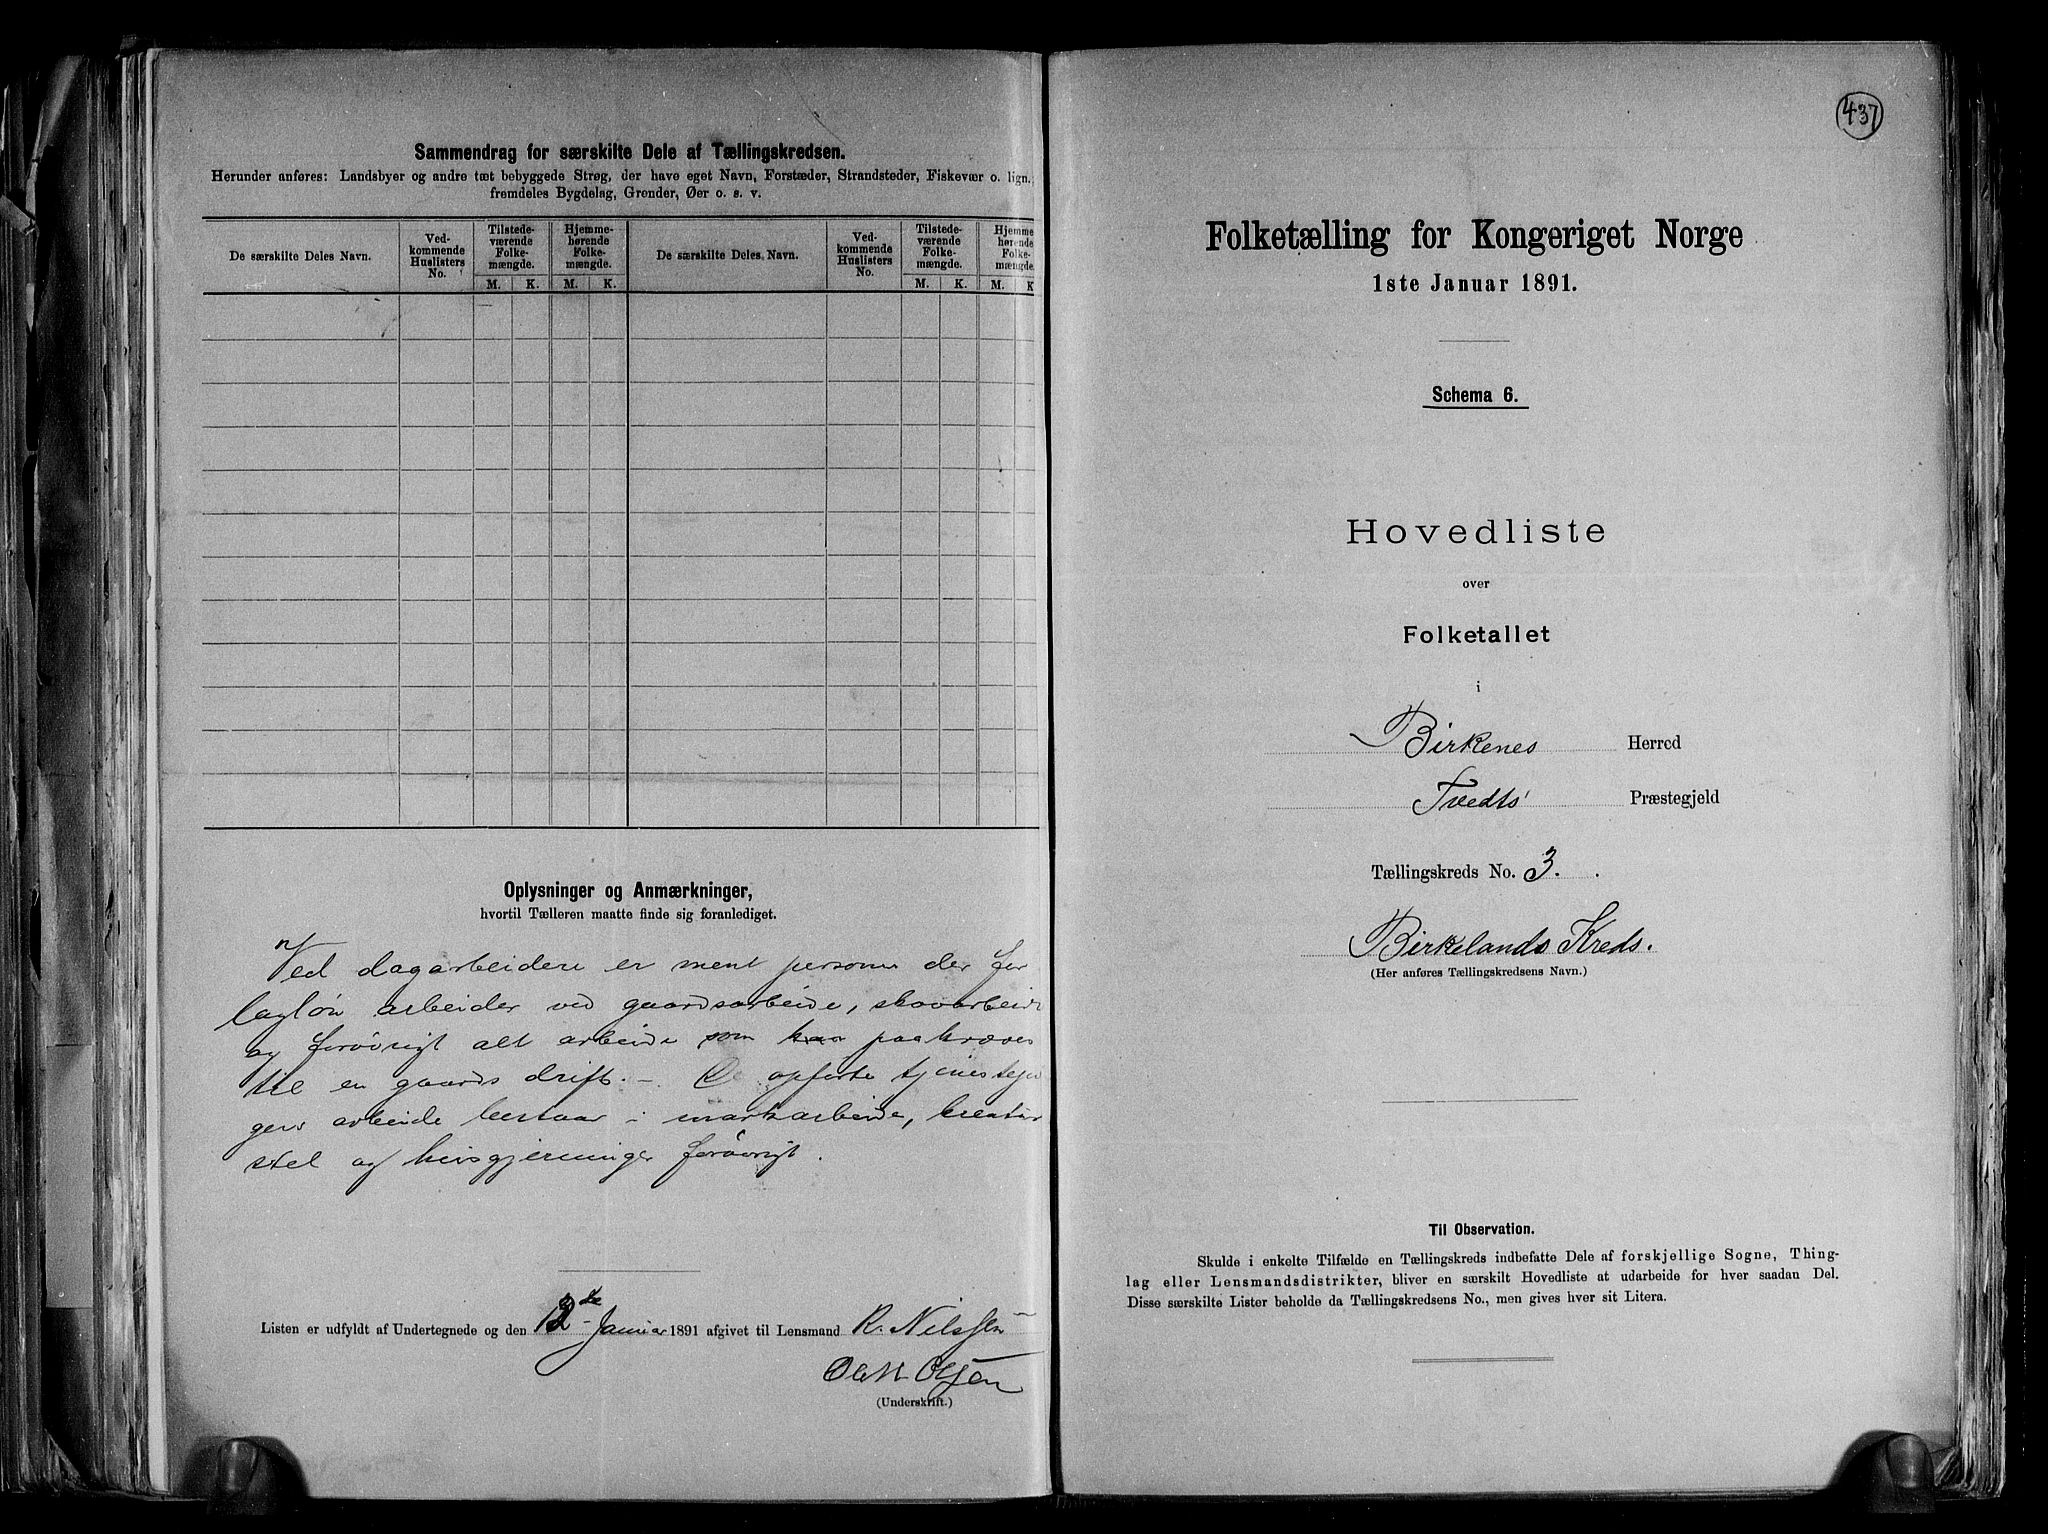 Sammendrag for særskilte Dele af Tællingskredsen.
Herunder anføres: Landsbyer og andre tæt bebyggede Strøg, der have eget Navn, Forstæder, Strandsteder, Fiskevær o. lign.,
fremdeles Bygdelag, Grender, Øer o. s. v.
De særskilte Deles Navn.
Ved-
kommende
Huslisters
No.
Tilstede-
værende
Folke-
mængde.
Hjemme-
hørende
Folke-
mængde.
De særskilte Deles Navn.
Ved-
kommende
Huslisters
No.
Tilstede-
værende
Folke-
mængde.
Hjemme
hørende
Folke-
mængde.
M. K. M. K. M. K. M. K
Oplysninger og Anmærkninger,
hvortil Tælleren maatte finde sig foranlediget.
Ved dagarbeidere er ment personer der for
dagløn arbeider ved gaardsarbeide, skovarbeide
og forøvrigt alt arbeide som paakræves
til en gaards drift. – opførte
gers arbeide bestaar i markarbeide, kreatur
stel og husgjerninger forøvrigt.
Listen er udfyldt af Undertegnede og den 12te Januar 1891 afgivet til Lensmand R. Nilssen
Olsen
(Underskrift.)
437
Folketælling for Kongeriget Norge
1ste Januar 1891.
Schema 6.
Hovedliste
over
Folketallet
i
Birkenes Herred
Tvedts Præstegjeld
Tællingskreds No. 3.
Birkelands Kreds.
(Her anføres Tællingskredsens Navn.)
Til Observation.
Skulde i enkelte Tilfælde en Tællingskreds indbefatte Dele af forskjellige Sogne, Thing-
lag eller Lensmandsdistrikter, bliver en særskilt Hovedliste at udarbeide for hver saadan Del.
Disse særskilte Lister beholde da Tællingskredsens No., men gives hver sit Litera.